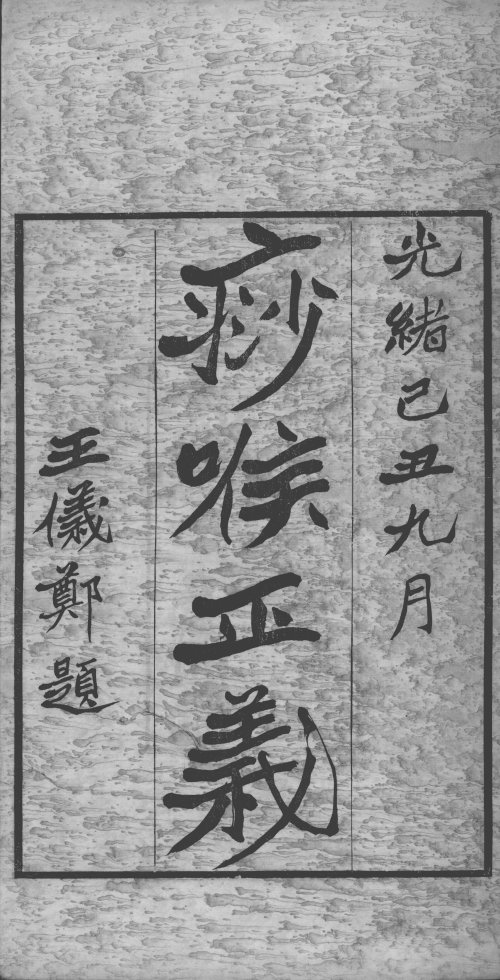 光緒己丑九月
痧喉正義
王儀鄭題